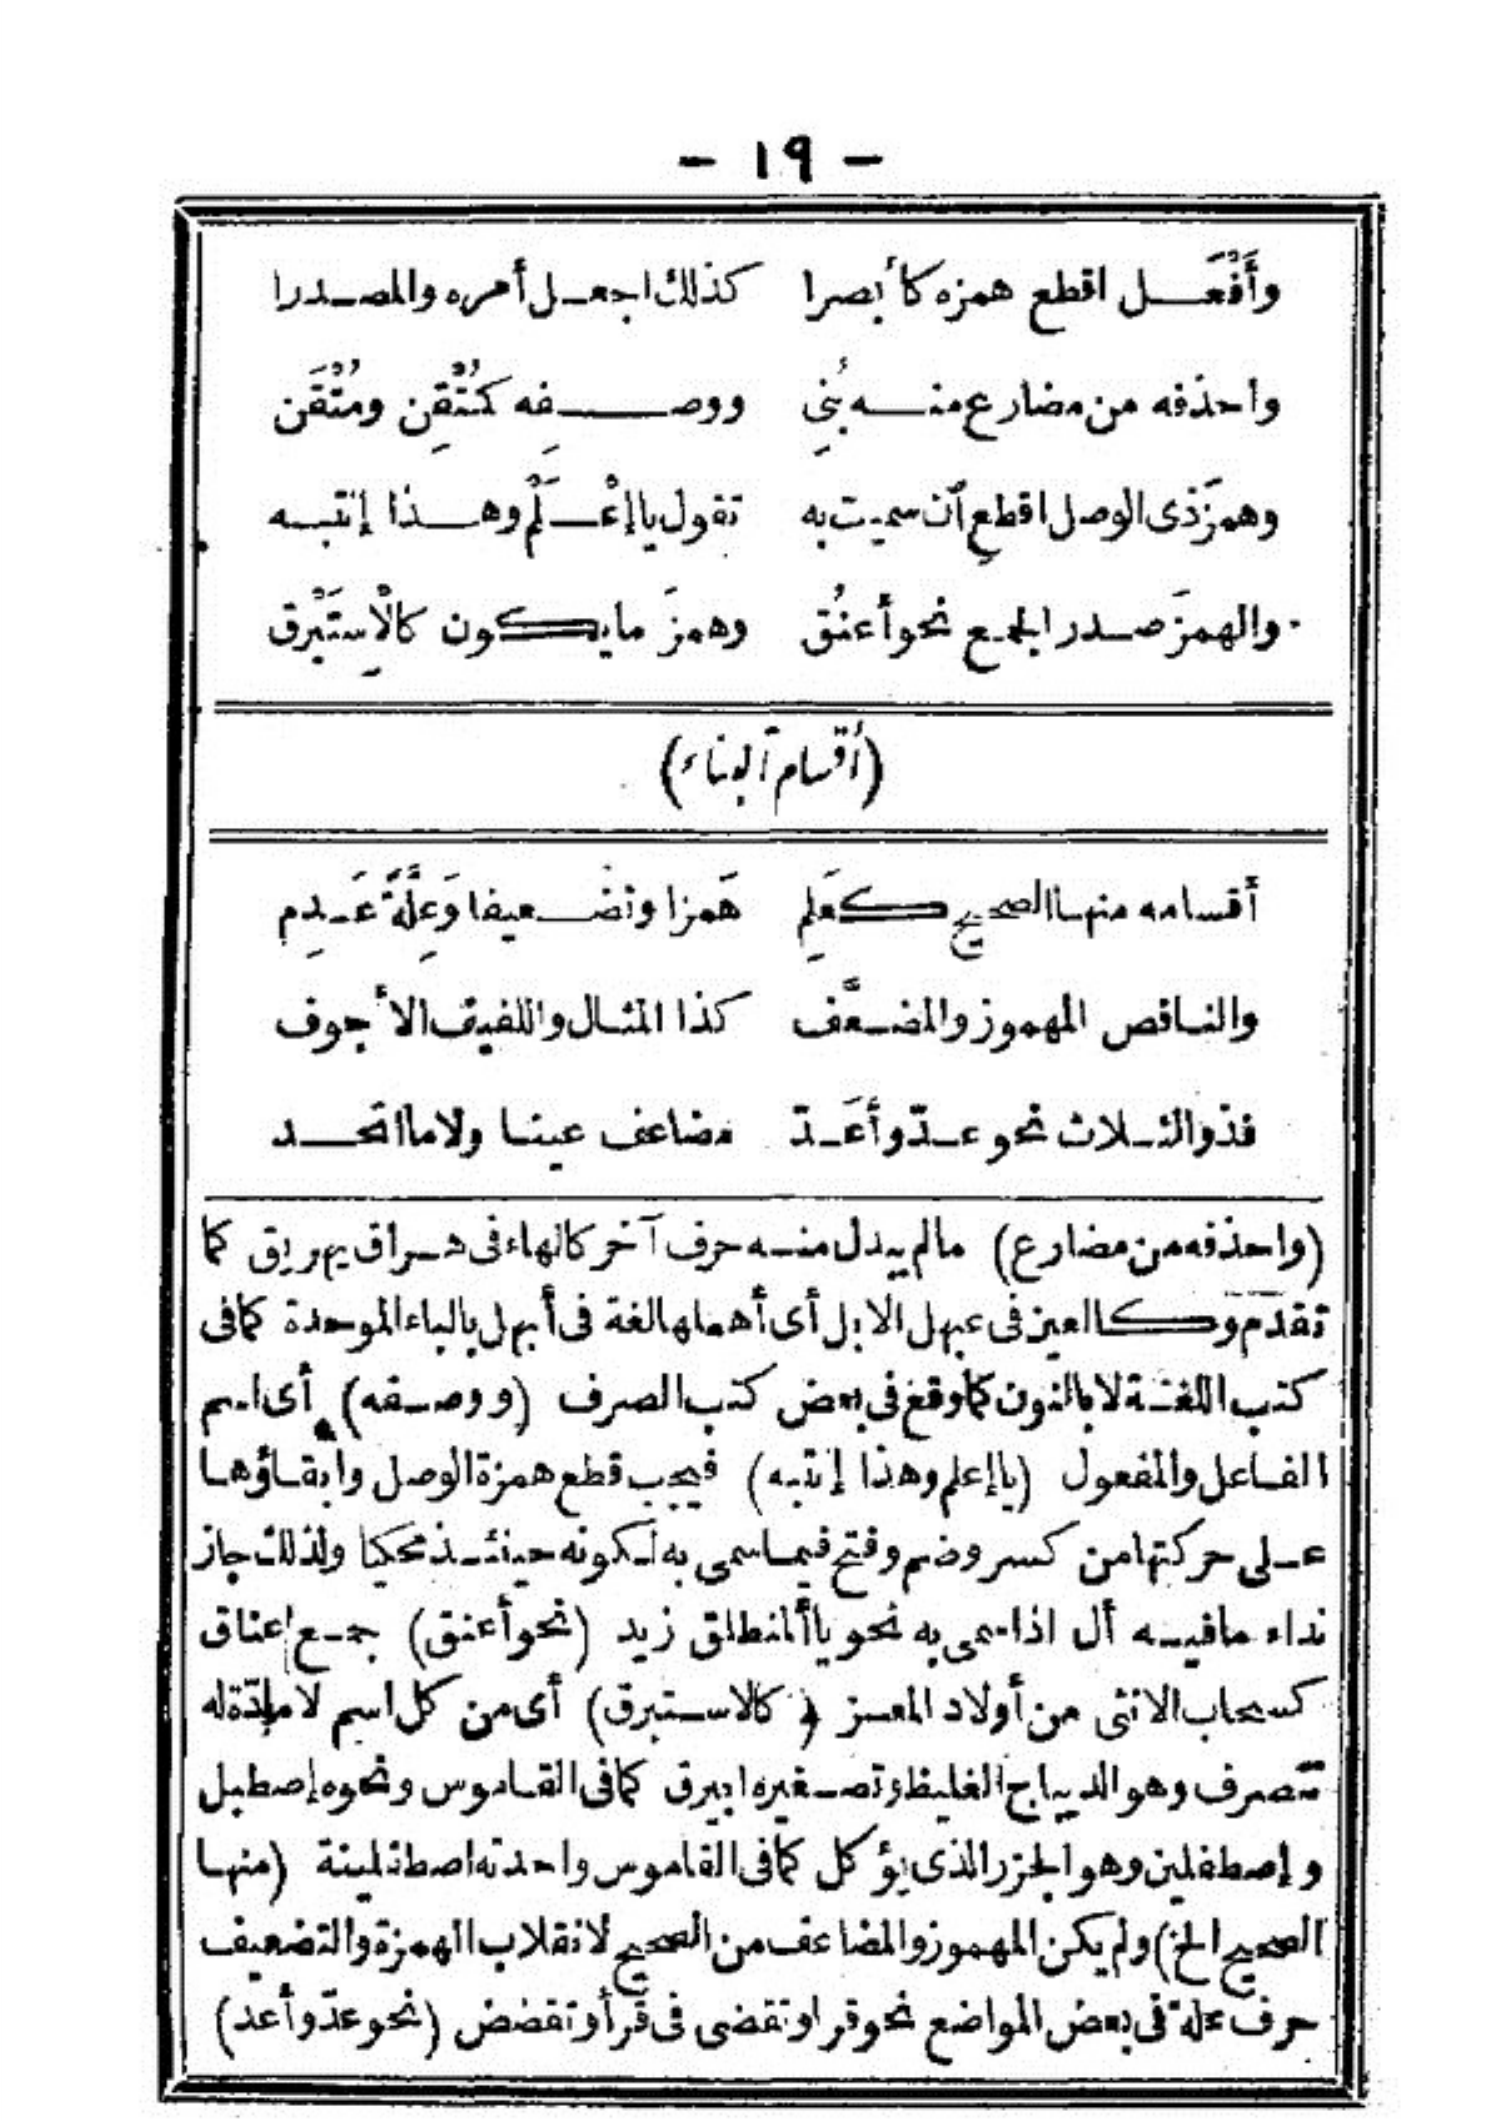 - ١٩ -
وأَفْعَل اقطع همزه كأبصرا كذلك اجعل أمره والمصدرا
واحذفه من مضارع منه بُنِي ووصفه كمُتْقِن ومُتْقَن
وهمزَ ذى الوصل اقطعِ آن سميت به تقول يا إعْلَمْ وهذا إنتبه
والهمزَ صدر الجمع نحو أعنُق وهمزَ ما يكون كالْإِستَبْرق
(أقسام ٱلبناء)
أقسامه منها الصحيح كعَلِم هَمزا وتضعيفا وَعِلَّةً عَدِم
والناقص المهموز والمضعَّف كذا المثال واللفيف الأجوف
فذو الثلاث نحو عدّ وأعَدّ مضاعف عينا ولاما اتحد
(واحذفه من مضارع) مالم يبدل منه حرف آخر كالهاء فى هراق يهريق كما
تقدّم وكالعين فى عبهل الابل أى أهملها لغة فى أبهل بالباء الموحدة كما فى
كتب اللغة لا بالنون كما وقع فى بعض كتب الصرف (ووصفه) أى اسم
الفاعل والمفعول (يا إعلم وهذا إنتبه) فيجب قطع همزة الوصل وابقاؤها
على حركتها من كسر وضم وفتح فيما سمى به لكونه حينئذ محكيا ولذلك جاز
نداء ما فيه أل اذا سمى به نحو يا ألمنطلق زيد (نحو أعنق) جمع عناق
كسحاب الانثى من أولاد المعز (كالاستبرق) أى من كل اسم لا مادّة له
تتصرف وهو الديباج الغليظ وتصغيره ابيرق كما فى القاموس ونحوه إصطبل
وإصطفلين وهو الجزر الذى يؤكل كما فى القاموس واحدته اصطفلينة (منها
الصحيح الخ) ولم يكن المهموز والمضاعف من الصحيح لانقلاب الهمزة والتضعيف
حرف علة فى بعض المواضع نحو قرا وتقضى فى قرأ وتقضض (نحو عدّ وأعد)